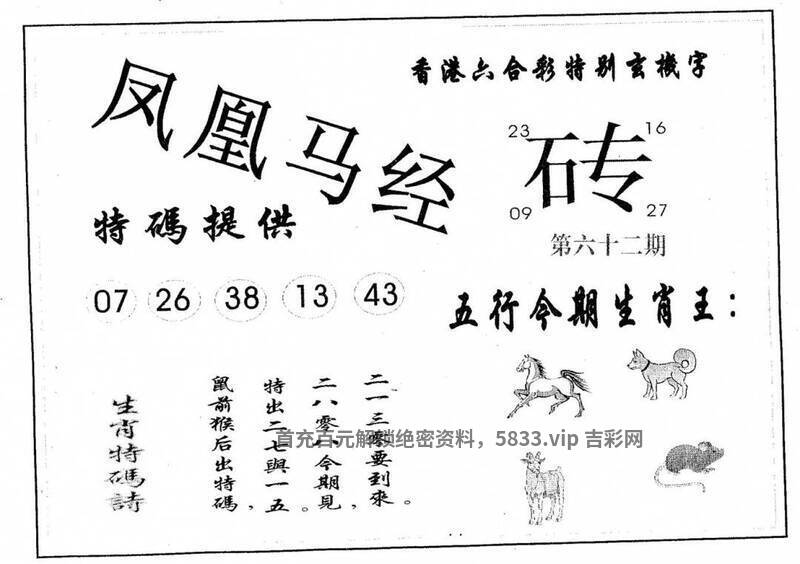 香港六合彩特别玄機字
凤凰马经
23 16
砖
09 27
第六十二期
特碼提供
07 26 38 13 43
五行今期生肖王：
生肖特碼詩
鼠前猴后出特碼，
特出二七與一五。
二八零六今期見，
二一三零要到來。
首充百元解锁绝密资料，5833.vip 吉彩网